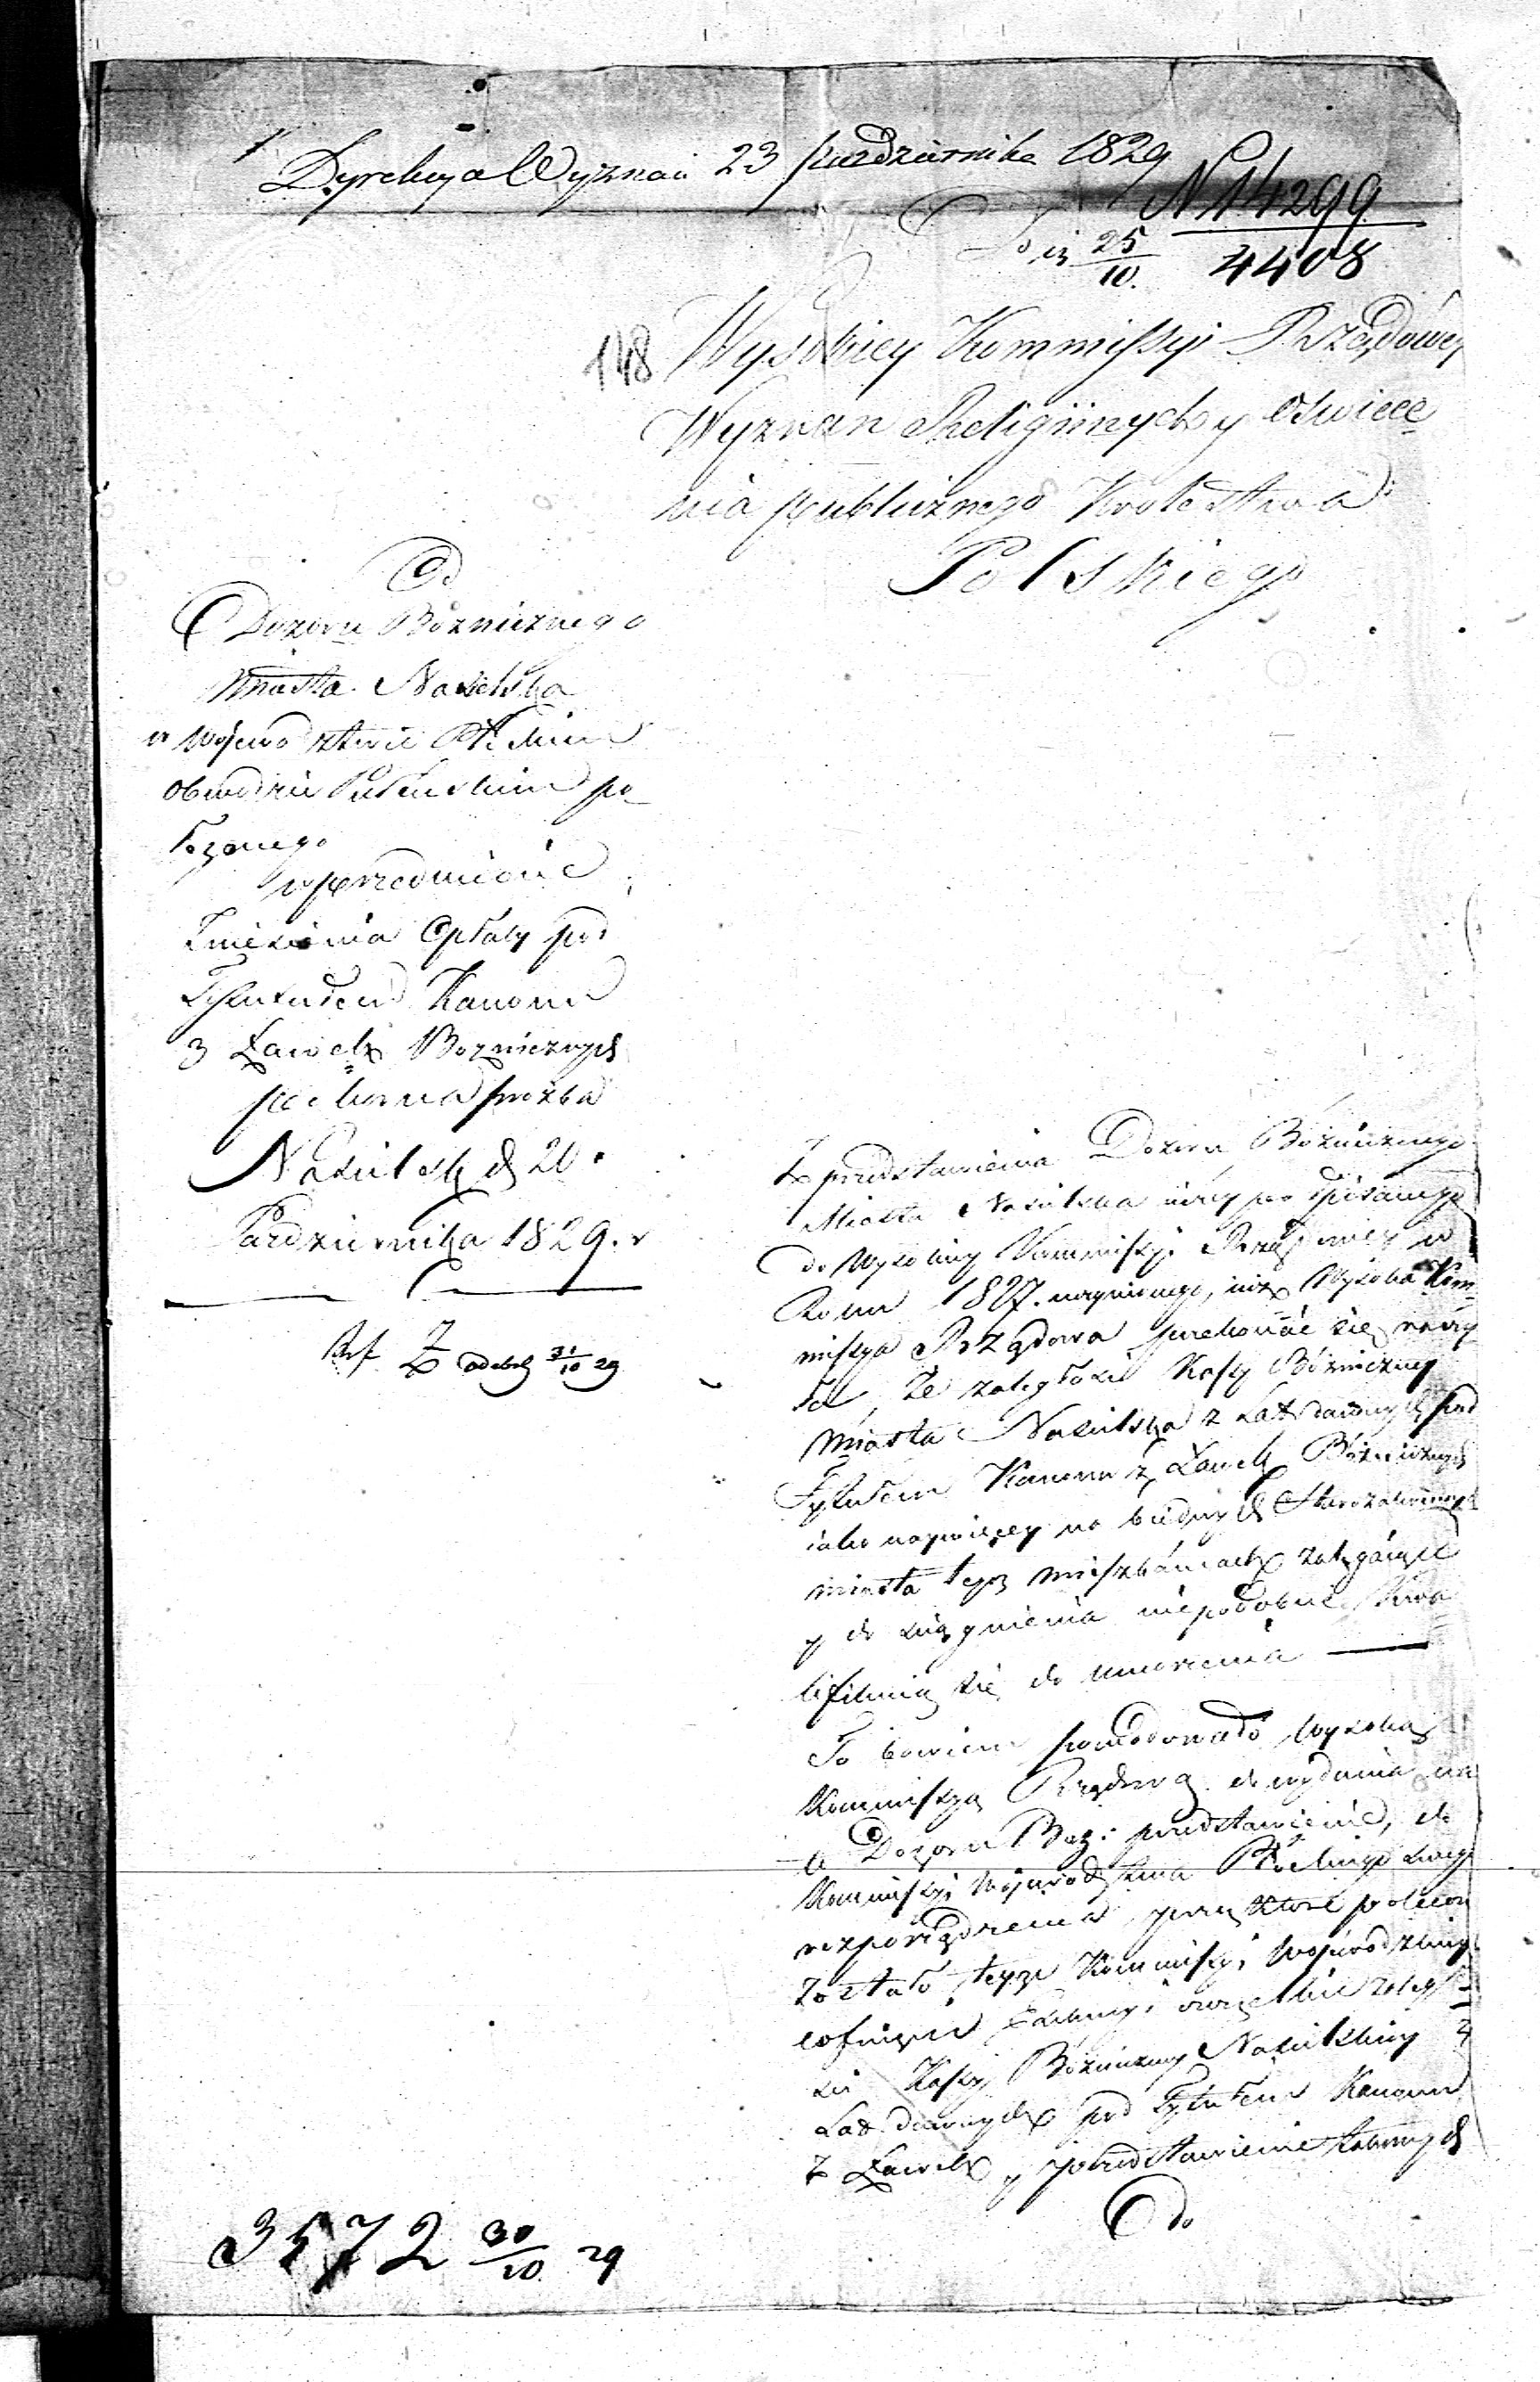 Dyrekcya Wyznań 23 Pazdziernika 1829
N 14299
4408
25/10.
148
Wysokiey Kommissyi Rządowey
Wyznan Religiinych y Oswiece
nia publicznego Krolestwa
Polskiego
Od
Dozoru Bożnicznego
Miasta Nasielska
w Wojewodztwie Płockim
Obwodzie Pułtuskim po-
łożonego
w przedmiocie
Zniesienia Opłaty pod
Tytułem Kanonu
z Ławek Bożnicznych
pokorna prozba
Nasielsk d 20
Pazdziernika 1829. r
odebr 31/10 29
Z przedstawienia Dozoru Bożnicznego
Miasta Nasielska niżey podpisanego
do Wysokiey Kommissyi Rządowey w
Roku 1827. uczynionego, Wysoka Kom-
missya Rządowa przekonać się raczy
ła, że zaległości Kassy Bożniczney
Miasta Nasielska z Lat dawnych pod
Tytułem Kanonu z Ławek Bożnicznych
iako naywięcey na biednych Starozakonnych
miasta tego mieszkańcach zalegaiące
y do ściągnienia niepodobne kwa
lifikuią się do umorzenia
To bowiem powodowało Wysoką
Kommissyą Rządową do wydania na
Dozoru Boż: przedstawienie, do
Kommissyi Wojewodztwa Płockiego swego
rozporządzenia, przez które polecon
zostało teyże Kommissyi Wojewodzkiey
cofnięcie wszelkie zaległo-
ści Kassy Bożniczney Nasielskiey z
Lat dawnych pod Tytułem Kanonu
z Ławek y przedstawienie takowych
do
3572 30/10 29